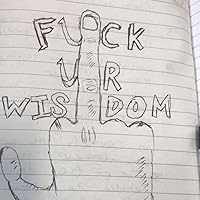 FUCK
UR
WISDOM